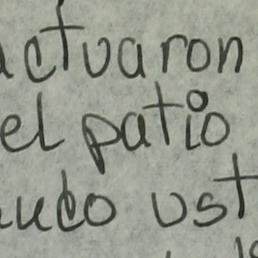 actuaron
el patio
ust